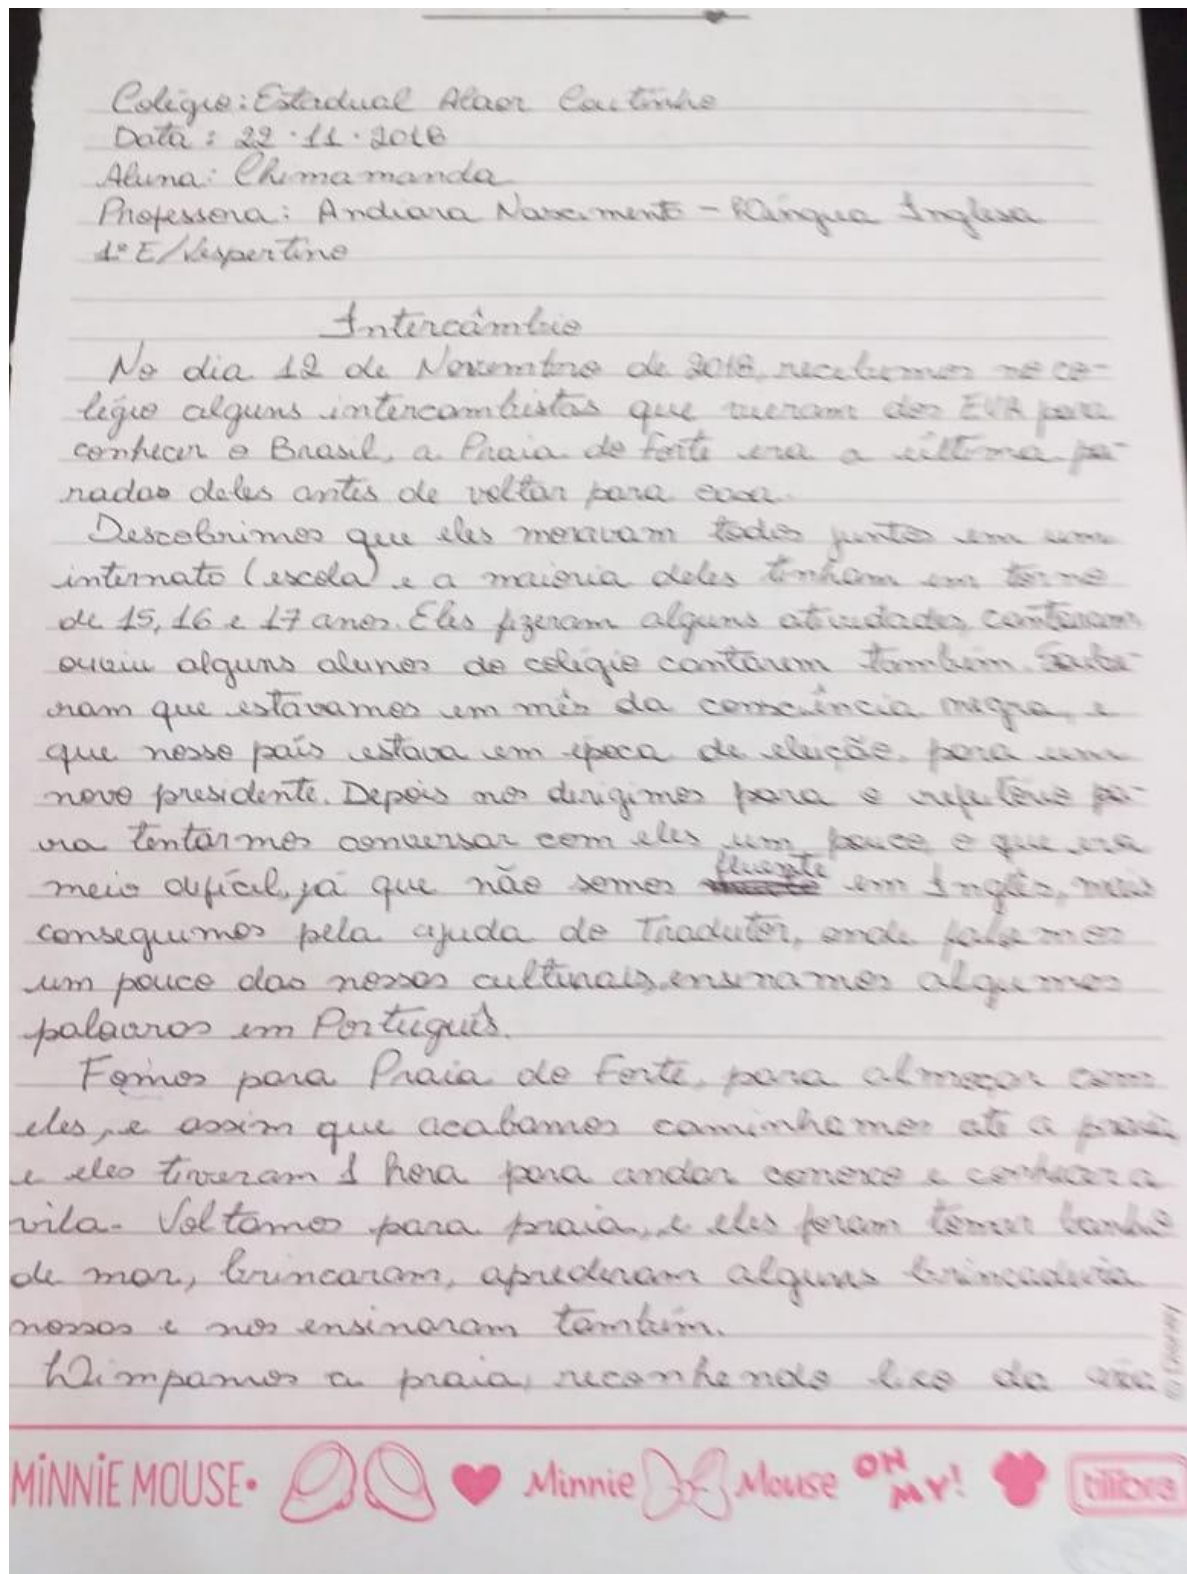 Colégio: Estadual Alaor Coutinho
Data: 22.11.2018
Aluna: Chimamanda
Professora: Andiara Nascimento - Língua Inglesa
1º E/Vespertino
Intercâmbio
No dia 12 de Novembro de 2018, recebemos no co-
légio alguns intercambistas que vieram dos EUA para
conhecer o Brasil, a Praia do Forte era a última pa-
radas deles antes de voltar para casa.
Descobrimos que eles moravam todos juntos em um
internato (escola) e a maioria deles tinham em torno
de 15, 16 e 17 anos. Eles fizeram alguns atividades, cantaram
ouviu alguns alunos do colégio cantarem também.
ram que estávamos em mês da consciência negra, e
que nosso país estava em época de eleição, para um
novo presidente. Depois nos dirigimos para o refeitório pa-
ra tentarmos conversar com eles um pouco, o que era
meio difícil, já que não somos fluente em Inglês, mais
conseguimos pela ajuda do Tradutor, onde falamos
um pouco das nossas culturais, ensinamos algumas
palavras em Português.
Fomos para Praia do Forte, para almoçar com
eles, e assim que acabamos caminhamos até a praia,
e eles tiveram 1 hora para andar e conhecer a
vila. Voltamos para praia, e eles foram tomar banho
de mar, brincaram, aprederam alguns brincadeira
nossas e nos ensinaram também.
Limpamos a praia, reconhendo lixo da areia
MINNIE MOUSE
Minnie Mouse OH MY!
tilibra
© Disney